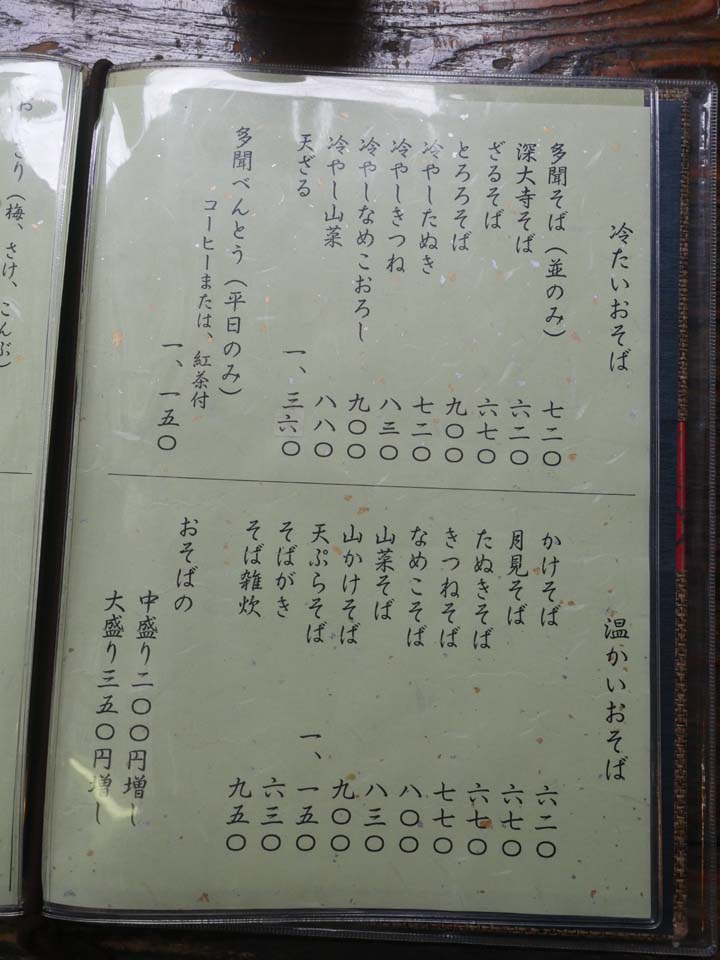 冷たいおそば
多聞そば（並のみ） 七二〇
深大寺そば 六二〇
ざるそば 六七〇
とろろそば 九〇〇
冷やしたぬき 七二〇
冷やしきつね 八三〇
冷やしなめこおろし 九〇〇
冷やし山菜 八八〇
天ざる 一、三六〇
多聞べんとう（平日のみ）
コーヒーまたは、紅茶付
一、一五〇
温かいおそば
かけそば 六二〇
月見そば 六七〇
たぬきそば 六七〇
きつねそば 七七〇
なめこそば 八〇〇
山菜そば 八三〇
山かけそば 九〇〇
天ぷらそば 一、一五〇
そばがき 六三〇
そば雑炊 九五〇
おそばの
中盛り二〇〇円増し
大盛り三五〇円増し
（梅、さけ、こんぶ）